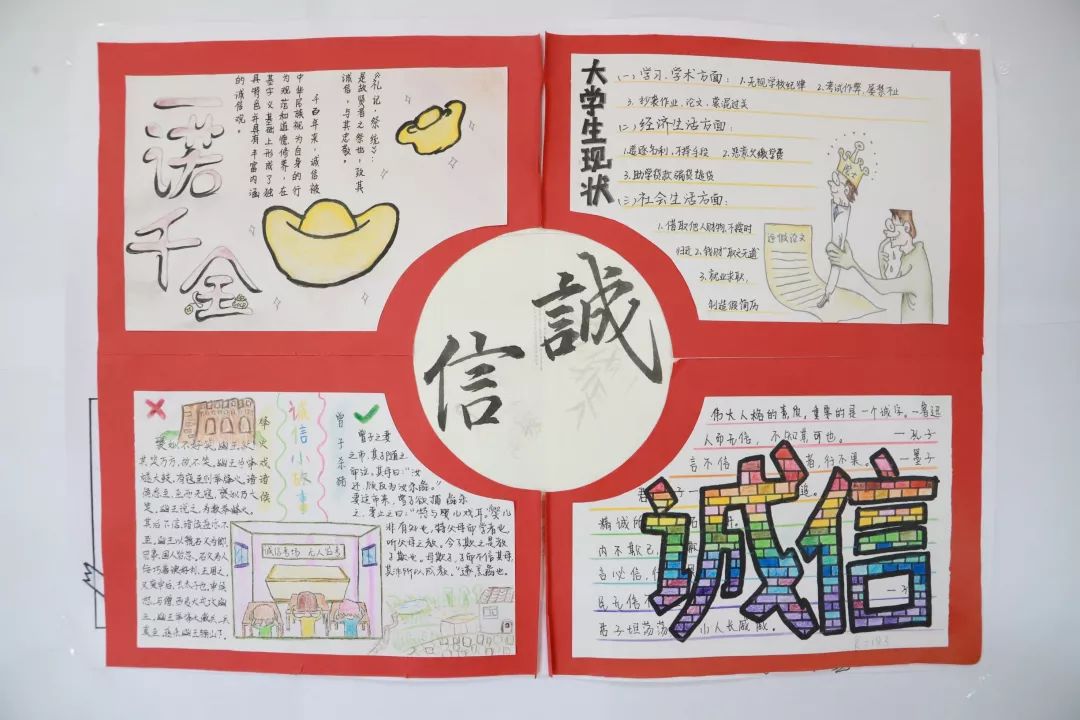 一诺千金
《礼记·祭统》：
是故贤者之祭也，致其
诚信，与其忠敬。
千百年来，诚信被
中华民族视为自身的行
为规范和道德修养，在
基本字义基础上形成了独
具特色并具有丰富内涵
的诚信观。
大学生现状
(一)学习、学术方面：1.无视学校纪律 2.考试作弊，屡禁不止
3.抄袭作业、论文，蒙混过关
(二)经济生活方面：
1.追逐名利，不择手段 2.恶意欠缴学费
3.助学贷款骗贷逃贷
(三)社会生活方面：
1.借取他人财物，不按时
归还 2.钱财"取之无道"
3.就业求职，
制造假简历
院士
造假论文
誠
信
诚信小故事
烽火戏诸侯
褒姒不好笑，幽王欲
其笑万方，故不笑。幽王为烽
燧大鼓，有寇至则举烽火。诸
侯悉至，至而无寇，褒姒乃大
笑。幽王说之，为数举烽火。
其后不信，诸侯益亦不
至。幽王以虢石父为卿，
用事，国人皆怨。石父为人
佞巧善谀好利，王用之。
又废申后，去太子也。申侯
怒，与缯、西夷犬戎攻幽
王。幽王举烽火徵兵，兵
莫至。遂杀幽王骊山下。
曾子杀猪
曾子之妻
之市，其子随之
而泣。其母曰："汝
还，顾反为汝杀彘。"
妻适市来，曾子欲捕彘杀
之。妻止之曰："特与婴儿戏耳。"婴儿
非有知也，待父母而学者也，
听父母之教。今子欺之，是教
子欺也。母欺子，子而不信其母，
其非所以成教。"遂烹彘也。
诚信考场 无人监考
伟大人格的素质，重要的是一个诚字。——鲁迅
人而无信，不知其可也。——孔子
言不信者，行不果。——墨子
精诚所
内不欺己，
言必信，
民无信不
君子坦荡荡，小人长戚戚。
诚信